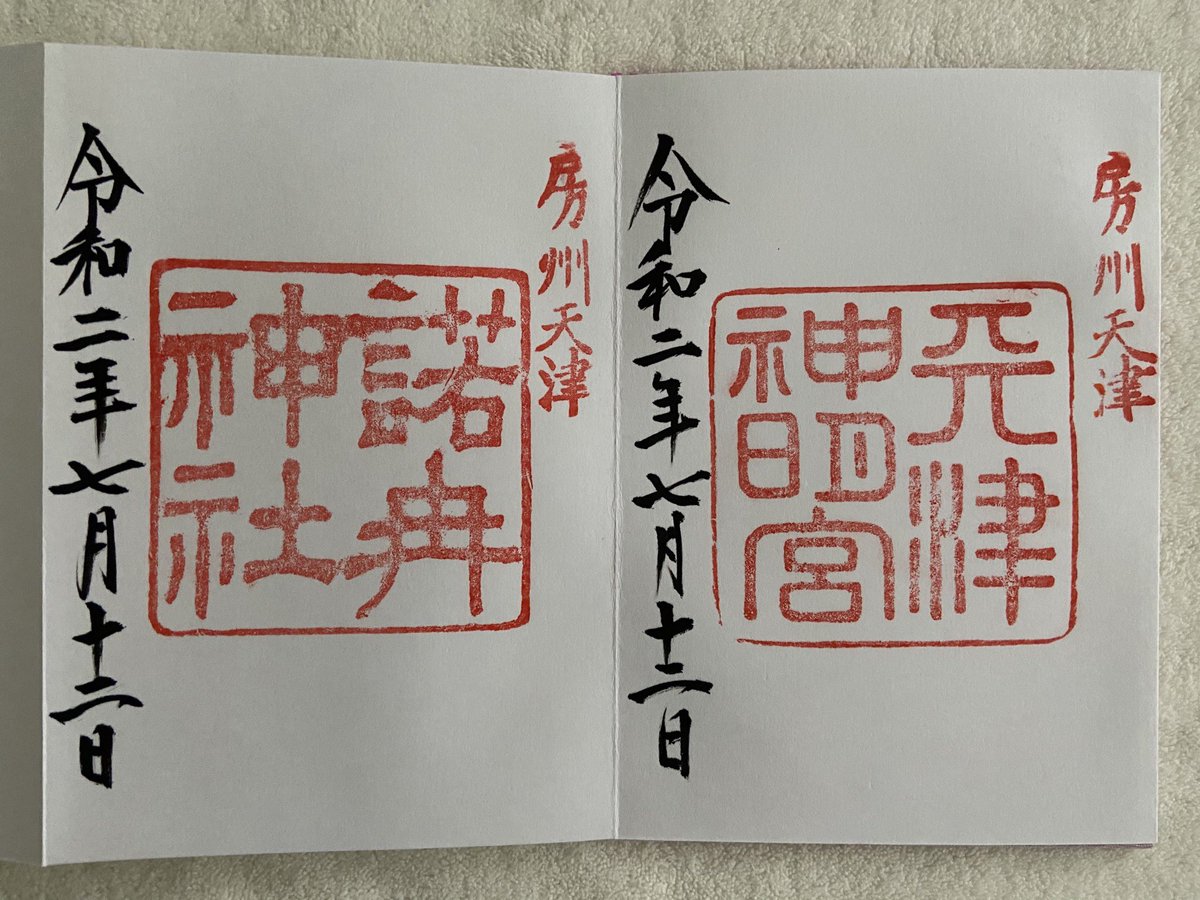 房州天津
天津
神明宮
令和二年七月十二日
房州天津
諾冉
神社
令和二年七月十二日